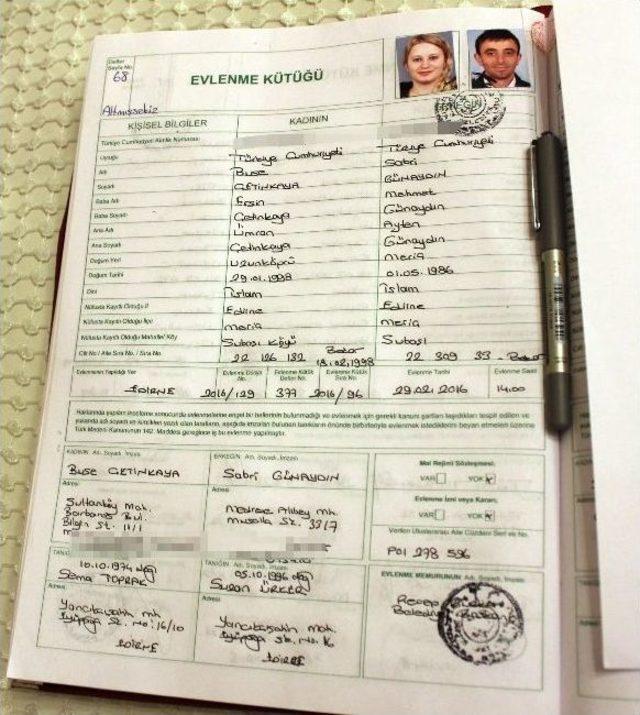 Defter
Sayfa No.
68
Altmışsekiz
EVLENME KÜTÜĞÜ
KİŞİSEL BİLGİLER KADININ
Türkiye Cumhuriyeti Kimlik Numarası
Uyruğu Türkiye Cumhuriyeti Türkiye Cumhuriyeti
Adı Buse Sabri
Soyadı ÇETİNKAYA GÜNAYDIN
Baba Adı Ersin Mehmet
Baba Soyadı Çetinkaya Günaydın
Ana Adı Ümran Ayten
Ana Soyadı Çetinkaya Günaydın
Doğum Yeri Uzunköprü Meriç
Doğum Tarihi 01.05.1986
Dini İslam İslam
Nüfusta Kayıtlı Olduğu İl Edirne Edirne
Nüfusta Kayıtlı Olduğu İlçe Meriç Meriç
Nüfusta Kayıtlı Olduğu Mahalle/ Köy Subaşı Köyü Subaşı
Cilt No / Aile Sıra No. / Sıra No. 22 126 132 Bekar 22 309 33 - Bekar
Evlenmenin Yapıldığı Yer Evlenme Dosya No. Evlenme Kütük Defter No. Evlenme Kütük Sıra No. Evlenme Tarihi Evlenme Saati
EDİRNE 2016/129 377 2016/96 29.02.2016 14.00
Haklarında yapılan inceleme sonucunda evlenmelerine engel bir hallerinin bulunmadığı ve evlenmek için gerekli kanuni şartları taşıdıkları tespit edilen ve
yukarıda adı soyadı ve kimlikleri yazılı olan tarafların, aşağıda imzaları bulunan tanıkların önünde birbirleriyle evlenmek istediklerini beyan etmeleri üzerine
Türk Medeni Kanununun 142. Maddesi gereğince iş bu evlenme yapılmıştır.
KADININ Adı, Soyadı, İmzası
Buse ÇETİNKAYA
ERKEĞİN Adı, Soyadı, İmzası
Sabri GÜNAYDIN
Mal Rejimi Sözleşmesi:
VAR YOK
Adresi
Sultanköy Mah.
Barbaros Bul.
Bilgin St. 11/1
Adresi
Medrese Alibey mh.
Musalla Sk. 33/7
Evlenme İzni veya Kararı,
VAR YOK
Verilen Uluslararası Aile Cüzdanı Seri ve No.
P01 278 596
TANIĞIN Adı, Soyadı, İmzası
10.10.1974
Sema TOPRAK
TANIĞIN Adı, Soyadı, İmzası
05.10.1996
EVLENME MEMURUNUN Adı, Soyadı, İmzası
Recep
Adresi
Yancıkçışahin mh
No: 16/10
EDİRNE
Adresi
Yancıkçışahin mah.
EDİRNE